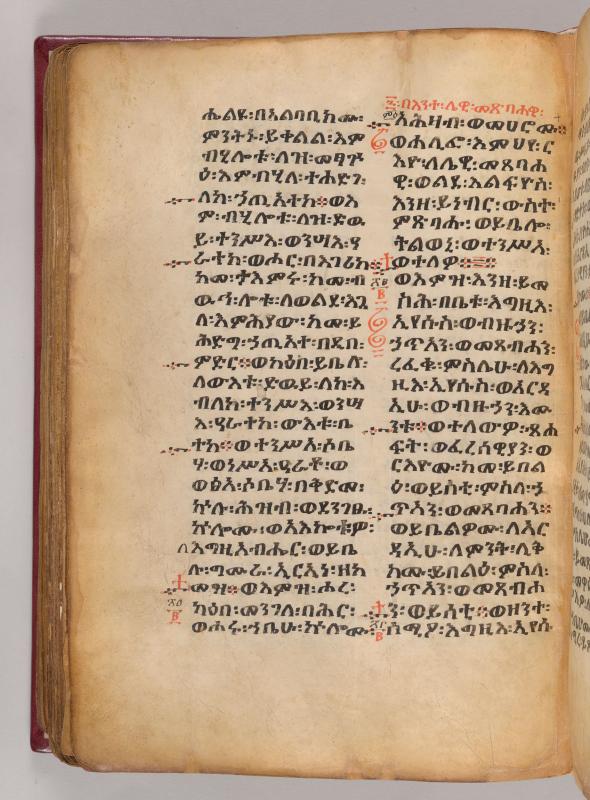 ሔልዩ፡በአልባቢክሙ፡
ምንትኑ፡ይቀልል፡እም
ብሂሎቱ፡ለዝ፡መፃጕ
ዕ፡እምብሂለ፡ተሐድገ፡
ለከ፡ኃጢአትከ፨ወእ
ም፡ብሂሎቱ፡ለዝ፡ድዉ
ይ፡ተንሥእ፡ወንሣእ፡ዓ
ራተከ፡ወሖር፡በእገሪከ፨
ከመ፡ታእምሩ፡ከመ፡ብ
ዉኅ፡ሎቱ፡ለወልደ፡እጓ
ለ፡እምሕያው፡ከመ፡ይ
ሕድግ፡ኃጢአተ፡በዲበ፡
ምድር፨ወካዕበ፡ይቤሎ፡
ለውእቱ፡ድዉይ፡ለከ፡እ
ብለከ፡ተንሥእ፡ወንሣ
እ፡ዓራተከ፡ውእቱ፡ቤ
ተከ፨ወተንሥአ፡ሶቤ
ሃ፡ወነሥአ፡ዓራቶ፡ወ
ወፅአ፡ሶቤሃ፡በቅድመ፡
ኵሉ፡ሕዝብ፡ወደንገፁ፡
ኵሎሙ፡ወአእኰቱዎ፡
ለእግዚአብሔር፡ወይቤ
ሉ፡ግሙራ፡ኢርኢነ፡ዘከ
መዝ፨ወእምዝ፡ሖረ፡
ካዕበ፡መንገለ፡በሕር፡
ወሖሩ፡ኀቤሁ፡ኵሎሙ፡
በእንተ፡ሌዊ፡መጸብሓዊ፡
አሕዛብ፡ወመሀሮሙ፨
ወሐሊፎ፡እምህየ፡ር
እዮ፡ለሌዊ፡መጸብሐ
ዊ፡ወልደ፡እልፍዮስ፡
እንዘ፡ይነብር፡ውስተ፡
ምጽባሑ፡ወይቤሎ፡
ትልወኒ፡ወተንሥአ፡
ወተለዎ፨
ወእምዝ፡እንዘ፡ይመ
ስሕ፡በቤቱ፡እግዚእ፡
ኢየሱስ፡ወብዙኃን፡
ኃጥኣን፡ወመጸብሓን፡
ረፈቁ፡ምስሌሁ፡ለእግ
ዚእ፡ኢየሱስ፡ወአርዳ
ኢሁ፡ወብዙኃን፡እሙ
ንቱ፨ወተለውዎ፡ጸሐ
ፍት፡ወፈሪሳዊያን፡ወ
ርእዮሙ፡ከመ፡ይበል
ዕ፡ወይሰቲ፡ምስለ፡ኃ
ጥኣን፡ወመጸብሓን፨
ወይቤልዎሙ፡ለአር
ዳኢሁ፡ለምንት፡ሊቅ
ክሙ፡ይበልዕ፡ምስለ፡
ኃጥኣን፡ወመጸብሐ
ን፡ወይሰቲ፨ወዘንተ፡
ሰሚዖ፡እግዚእ፡ኢየሱ